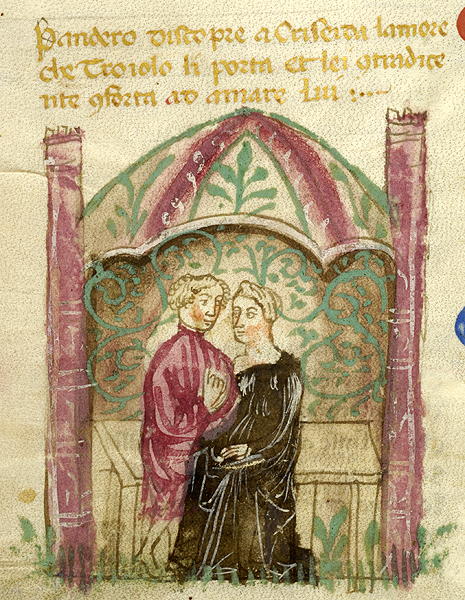 Pandero discopre a Criseida lamore
che Troiolo li porta et lei gtradice
nte gforta ad amare Lui :~